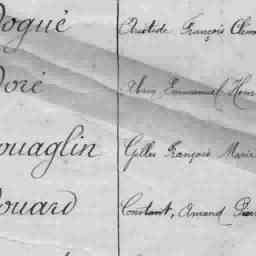 Dogué Aristide François Clém
Doré Henri
Douaglin Gilles François Marie
Douard Constant, Amand Pierr